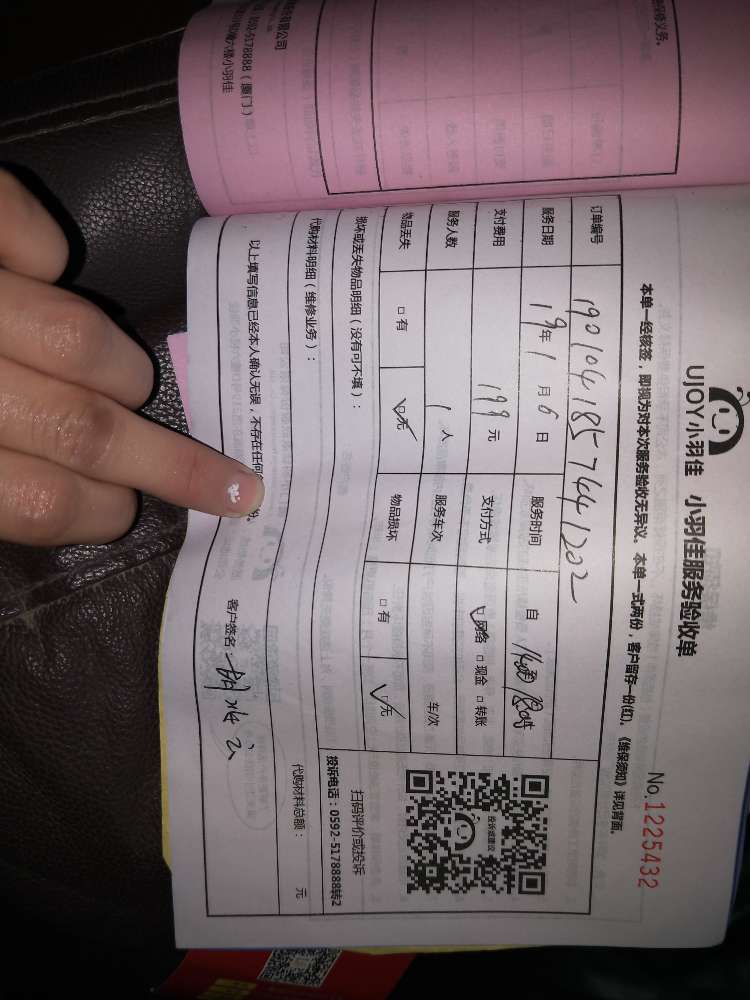 UJOY小羽佳 小羽佳服务验收单
No.1225432
本单一经核签，即视为对本次服务验收无异议。本单一式两份，客户留存一份(红)。《维保须知》详见背面。
订单编号 1901041857441202
服务日期 19年1月6日 服务时间 自
支付费用 199元 支付方式 ☑网络 □现金 □转账
服务人数 1人 服务车次 车/次
物品丢失 □有 ☑无 物品损坏 □有 ☑无
扫码评价或投诉
投诉电话：0592-5178888转2
投诉或建议
损坏或丢失物品明细（没有可不填）：
代购材料明细（维修业务）： 代购材料总额： 元
以上填写信息已经本人确认无误，不存在任何
客户签名：
务有限公司
0592-5178888（厦门）
六楼小羽佳
保修义务。